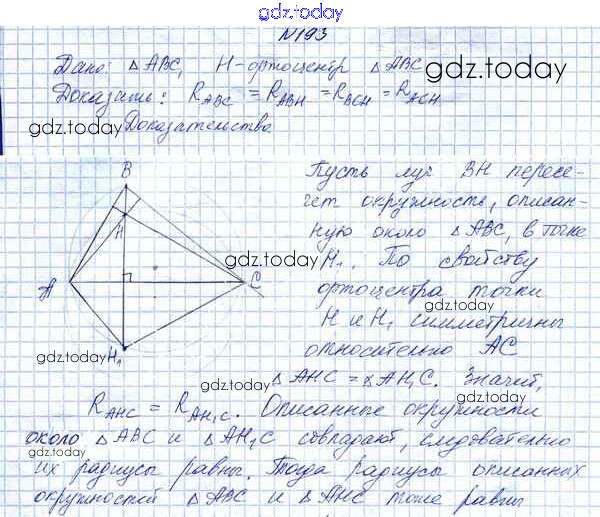 gdz.today
№193
Дано: △ABC, H-ортоцентр △ABC
gdz.today
Доказать: R ABC = R ABH = R BCH = R ACH
gdz.today
Доказательство
B
H
A
C
H₁
gdz.today
gdz.today
Пусть луч BH пересе-
чет окружность, описан-
ную около △ABC, в точке
H₁. По свойству
ортоцентра точки
gdz.today
H и H₁ симметричны
относительно AC
gdz.today
△AHC = △AH₁C. Значит,
R AHC = R AH₁C. Описанные окружности
около △ABC и △AH₁C совпадают, следовательно
их радиусы равны. Тогда радиусы описанных
окружностей △ABC и △AHC тоже равны
gdz.today
gdz.today